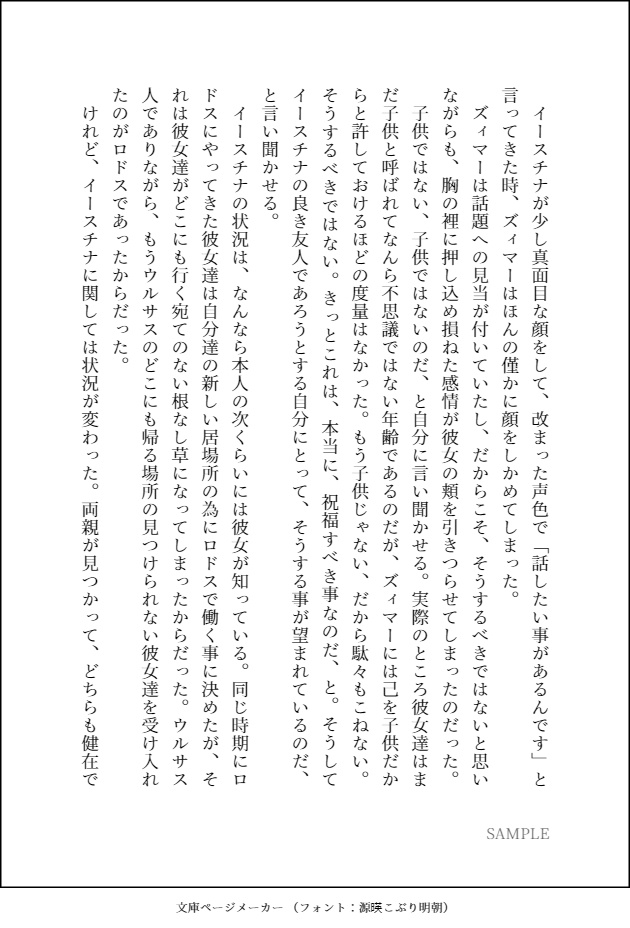 イースチナが少し真面目な顔をして、改まった声色で「話したい事があるんです」と
言ってきた時、ズィマーはほんの僅かに顔をしかめてしまった。
　ズィマーは話題への見当が付いていたし、だからこそ、そうするべきではないと思い
ながらも、胸の裡に押し込め損ねた感情が彼女の頬を引きつらせてしまったのだった。
　子供ではない、子供ではないのだ、と自分に言い聞かせる。実際のところ彼女達はま
だ子供と呼ばれてなんら不思議ではない年齢であるのだが、ズィマーには己を子供だか
らと許しておけるほどの度量はなかった。もう子供じゃない、だから駄々もこねない。
そうするべきではない。きっとこれは、本当に、祝福すべき事なのだ、と。そうして
イースチナの良き友人であろうとする自分にとって、そうする事が望まれているのだ、
と言い聞かせる。
　イースチナの状況は、なんなら本人の次くらいには彼女が知っている。同じ時期にロ
ドスにやってきた彼女達は自分達の新しい居場所の為にロドスで働く事に決めたが、そ
れは彼女達がどこにも行く宛てのない根なし草になってしまったからだった。ウルサス
人でありながら、もうウルサスのどこにも帰る場所の見つけられない彼女達を受け入れ
たのがロドスであったからだった。
　けれど、イースチナに関しては状況が変わった。両親が見つかって、どちらも健在で
SAMPLE
文庫ページメーカー（フォント：源暎こぶり明朝）